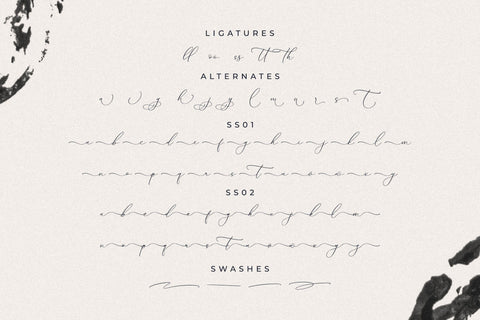 LIGATURES
ll oo es tt th
ALTERNATES
SS01
a b c d e f g h i j k l m
n o p q r s t u v w x y z
SS02
a b c d e f g h i j k l m
n o p q r s t u v w x y z
SWASHES